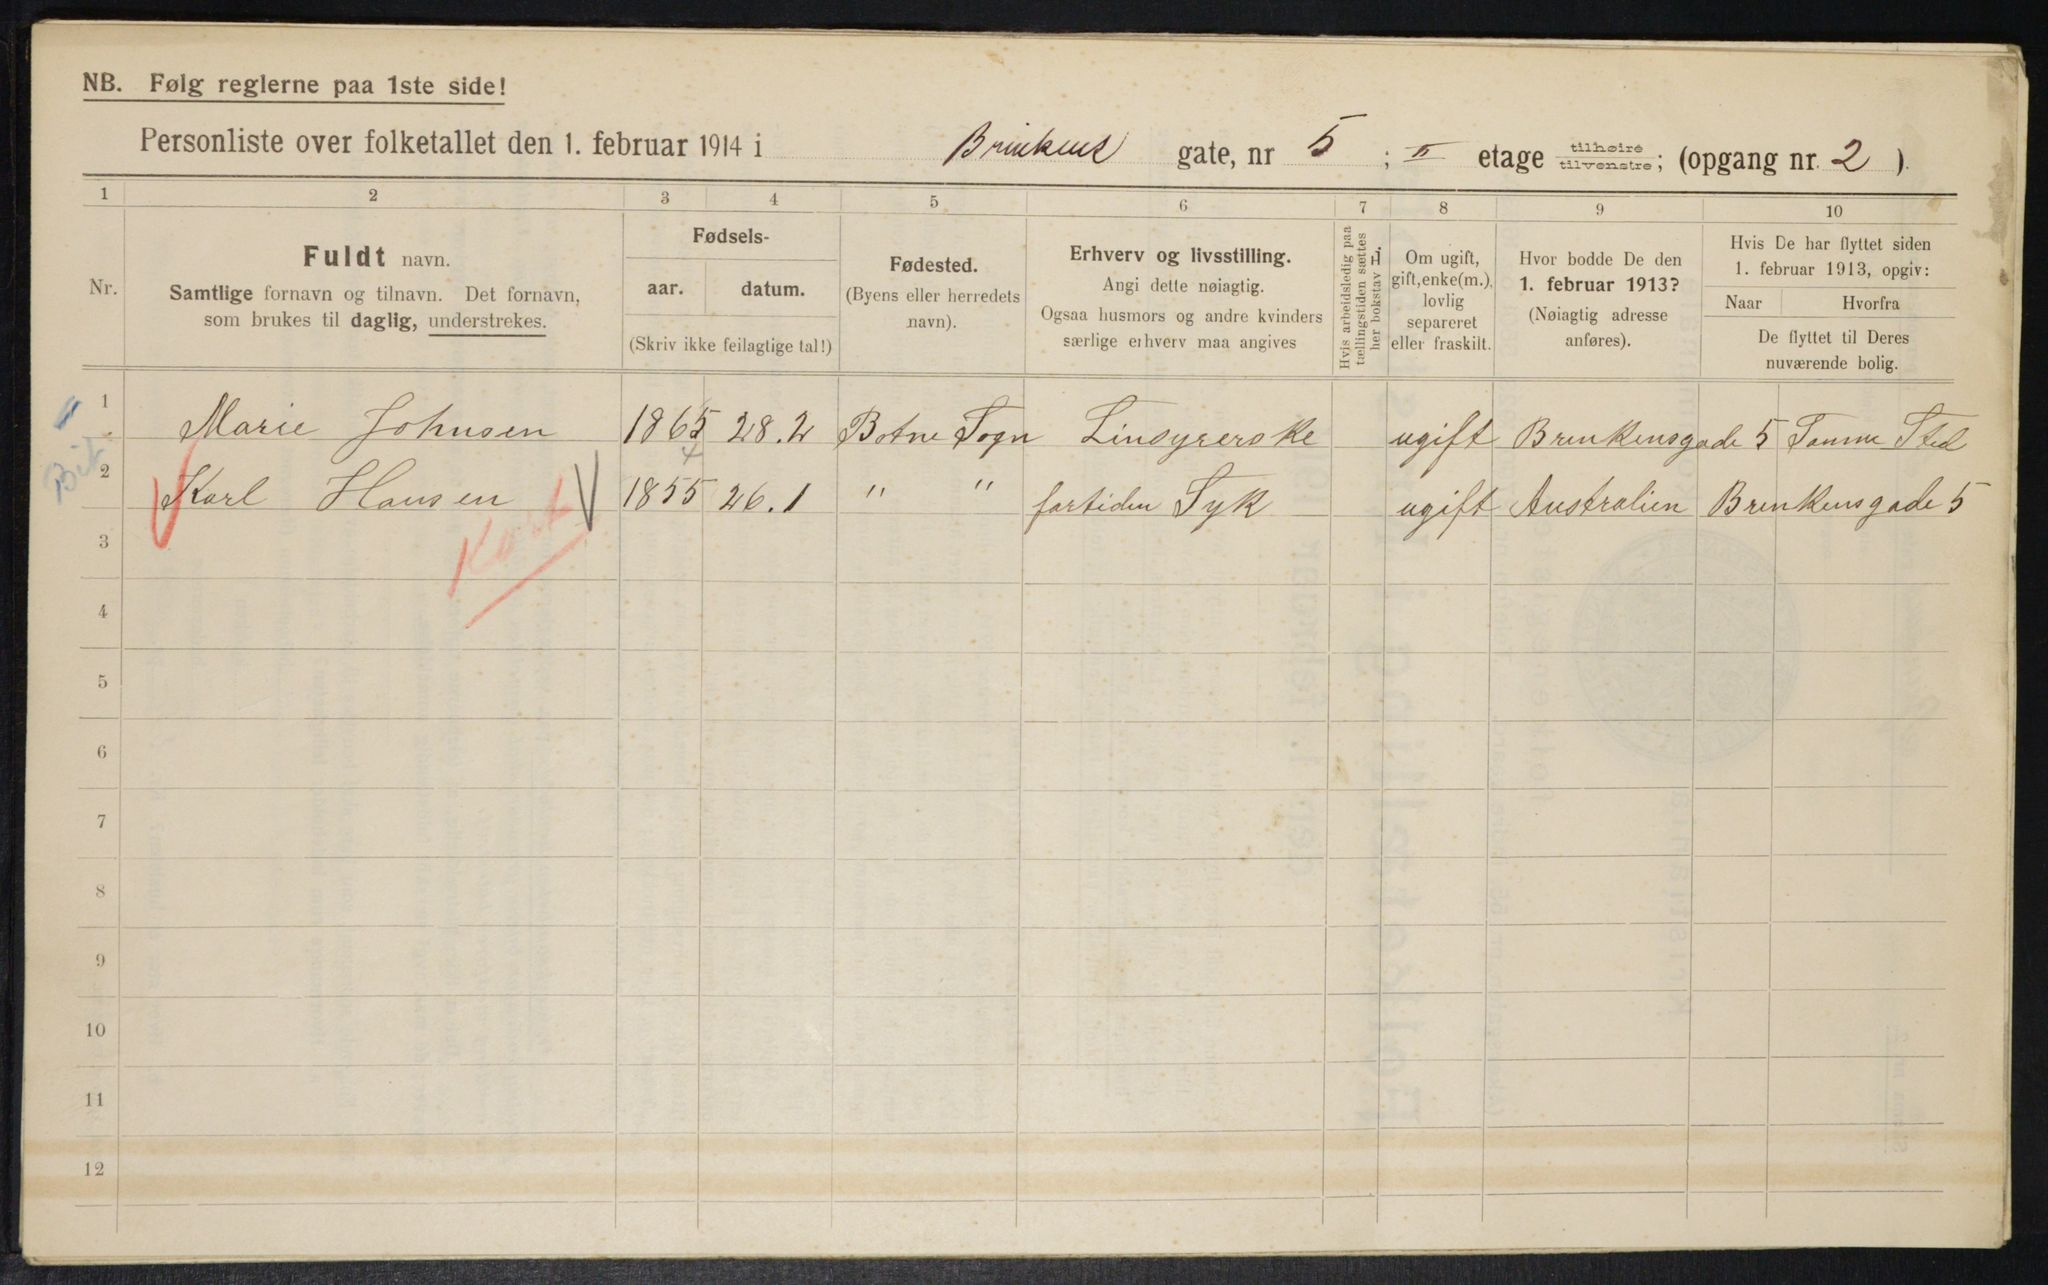 NB. Følg reglerne paa 1ste side!
Personliste over folketallet den 1. februar 1914 i Brinkens gate, nr 5; II etage tilhøire tilvenstre; (opgang nr. 2).
1 2 3 4 5 6 7 8 9 10
Nr.
Fuldt navn.
Samtlige fornavn og tilnavn. Det fornavn,
som brukes til daglig, understrekes.
Fødsels-
aar. datum.
(Skriv ikke feilagtige tal!)
Fødested.
(Byens eller herredets
navn).
Erhverv og livsstilling.
Angi dette nøiagtig.
Ogsaa husmors og andre kvinders
særlige erhverv maa angives
Hvis arbeidsledig paa
tællingstiden sættes
her bokstav L.
Om ugift,
gift, enke(m.),
lovlig
separeret
eller fraskilt.
Hvor bodde De den
1. februar 1913?
(Nøiagtig adresse
anføres).
Hvis De har flyttet siden
1. februar 1913, opgiv:
Naar Hvorfra
De flyttet til Deres
nuværende bolig.
1 Marie Johnsen 1865 28.2 Botne Sogn Linsyrerske ugift Brinkensgade 5 Samme Sted
2 Karl Hansen 1855 26.1 " " fortiden Syk ugift Australien Brinkensgade 5
Kort
3
4
5
6
7
8
9
10
11
12